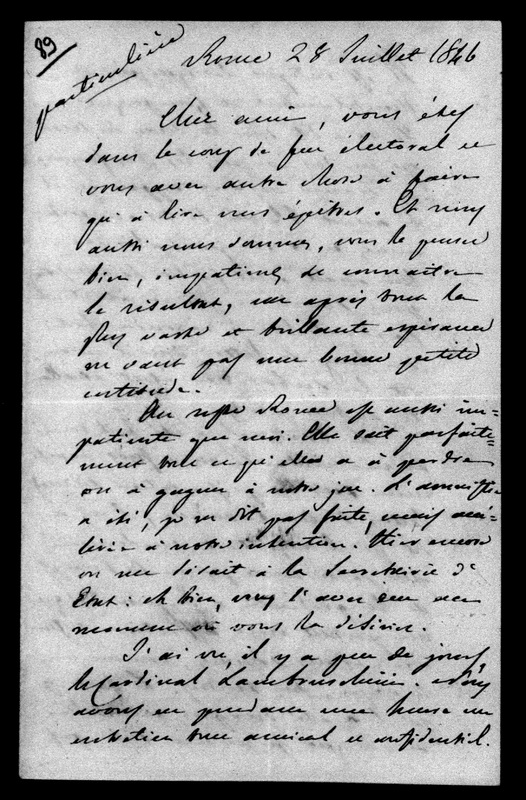 89
particulière
Rome 28 Juillet 1846
Cher ami, vous êtes
dans le coup de feu électoral et
vous avez autre chose à faire
qu'à lire nos épîtres. Et nous
aussi nous sommes, vous le pensez
bien, impatiens de connaître
le résultat, car après tout la
plus vaste et brillante espérance
ne vaut pas une bonne petite
certitude.
Au reste Rome est aussi im=
patiente que nous. Elle sait parfaite=
ment tout ce qu'elle a à perdre
ou à gagner à notre jeu. L'amnistie
a été, je ne dis pas faite, mais accé=
lérée à notre intention. Hier encore
on me disait à la Secrétairerie d'
Etat: eh bien, vous l'avez eue au
moment où vous la désiriez.
J'ai vu, il y a peu de jours
le Cardinal Lambruschini. Nous
avons eu pendant une heure un
entretien tout amical et confidentiel.